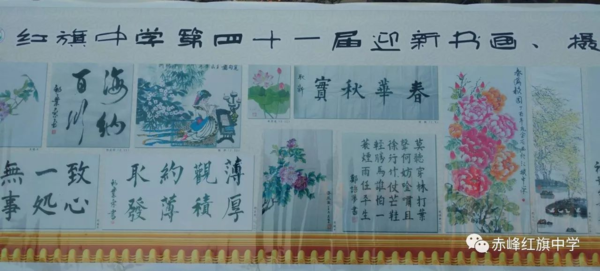 红旗中学第四十一届迎新书画、摄
海納
百川
春華秋實
春满校园
致心
一処
無事
薄觀約取
厚積薄發
莫聽穿林打葉
聲何妨吟嘯且
徐行竹杖芒鞋
輕勝馬誰怕一
蓑煙雨任平生
赤峰红旗中学